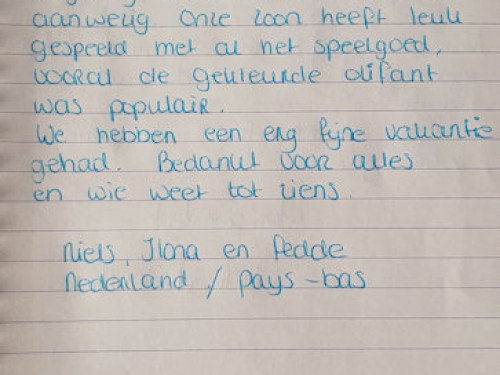 aanwezig. Onze zoon heeft leuk
gespeeld met al het speelgoed,
vooral de gekleurde olifant
was populair.
We hebben een erg fijne vakantie
gehad. Bedankt voor alles
en wie weet tot ziens.
Niels, Ilona en Fedde
Nederland / pays-bas